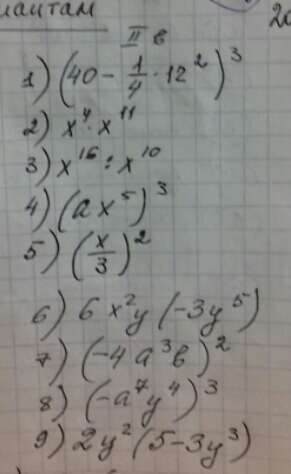 II в
1) (40 - 1/4 · 12²)³
2) x⁷ · x¹¹
3) x¹⁶ : x¹⁰
4) (ax⁵)³
5) (x/3)²
6) 6x²y (-3y⁵)
7) (-4a³в)²
8) (-a⁷y⁴)³
9) 2y² (5-3y³)